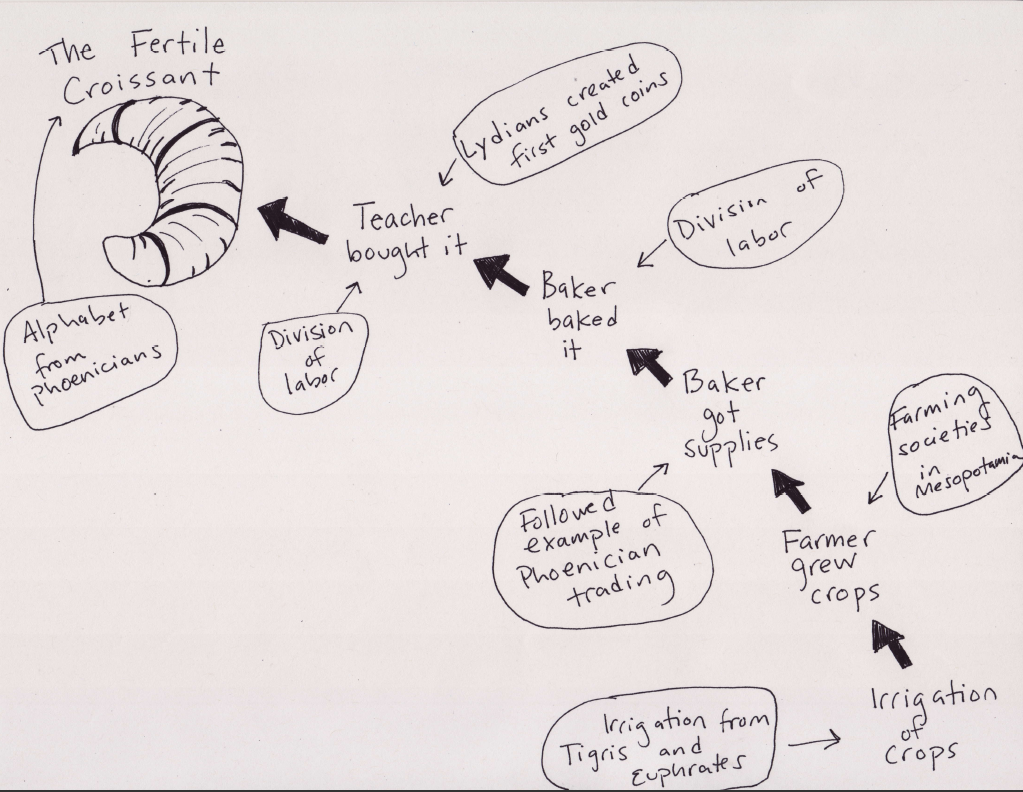 The Fertile
Croissant
Lydians created
first gold coins
Division of
labor
Teacher
bought it
Baker
baked
it
Alphabet
from
Phoenicians
Division
of
labor
Baker
got
supplies
Farming
societies
in
Mesopotamia
Followed
example of
Phoenician
trading
Farmer
grew
crops
Irrigation from
Tigris and
Euphrates
Irrigation
of
crops